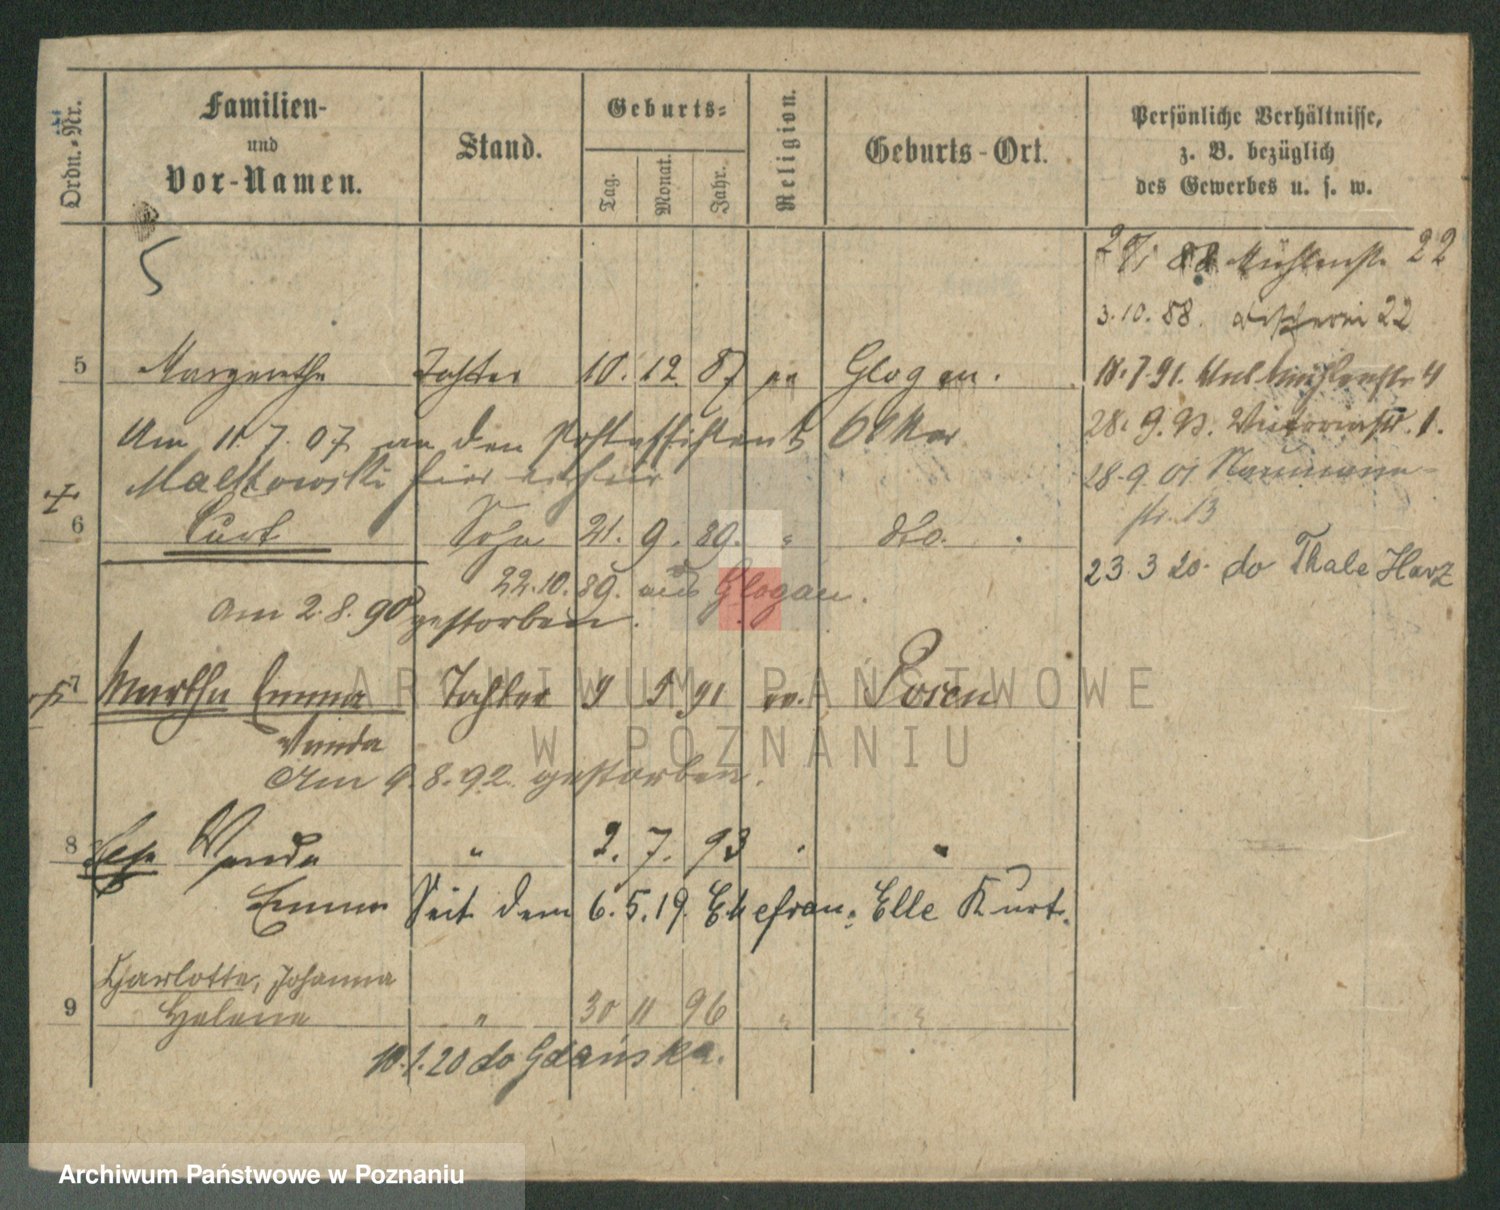 Ordn.-Nr.
Familien-
und
Vor-Namen.
Stand.
Geburts-
Tag.
Monat.
Jahr.
Religion.
Geburts-Ort.
Persönliche Verhältnisse,
z. B. bezüglich
des Gewerbes u. s. w.
5
88 Mühlenstr. 22
3.10.88. 22
5 Margarethe Tochter 10. 12. 87 ev Glogau.
18.7.91. 4
Am 11.7.07 an den Postassistent
28.9.93. 1.
Malkowski hier
28.9.01 Naumann-
str. 13
6 Curt Sohn 21. 9. 89. " dto.
23.3 20. do Thale Harz
22.10.89. aus Glogau.
Am 2.8.90 gestorben.
7 Martha Emma Tochter 9 5 91 ev. Posen
Wanda
Am 9.8.92. gestorben.
8 Else Wanda " 2. 7. 93 " "
Emma Seit dem 6.5.19. Ehefrau: Elle Kurt.
Charlotte, Johanna
9 Helene " 30 11 96 " "
10.1.20 do Gdańska.
ARCHIWUM PAŃSTWOWE
W POZNANIU
Archiwum Państwowe w Poznaniu